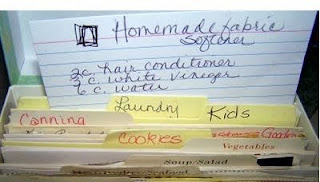 Homemade fabric
Softener
2c. hair conditioner
3c. white vinegar
6c. water
Laundry Kids
Canning
Cookies
Vegetables
Soup/Salad
Seafood